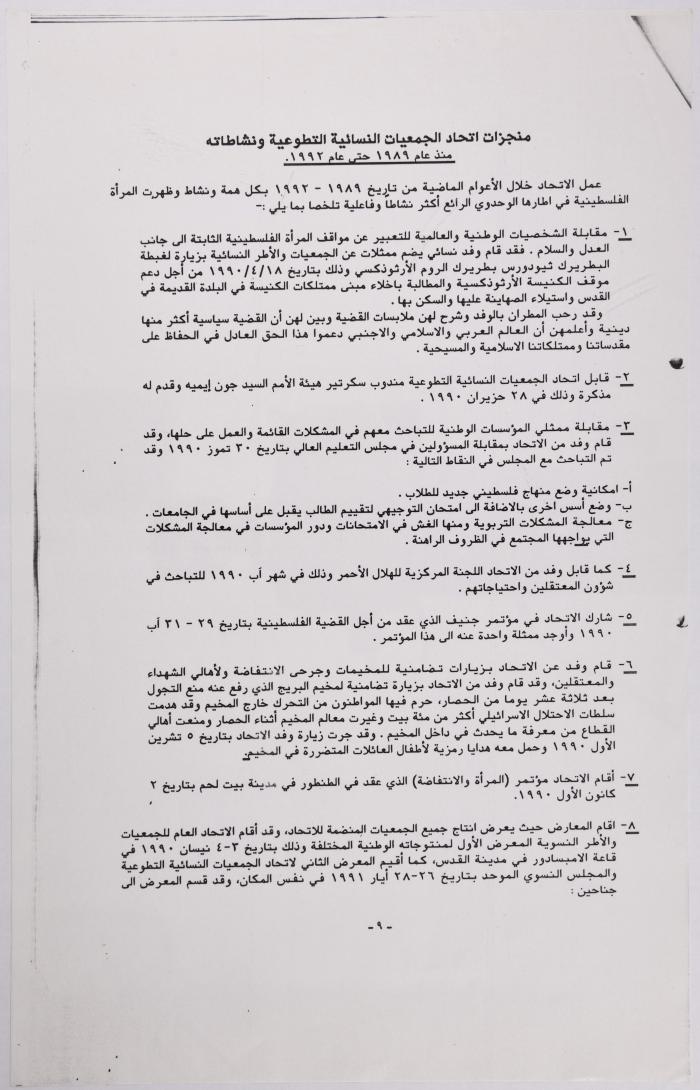 منجزات اتحاد الجمعيات النسائية التطوعية ونشاطاته
منذ عام ١٩٨٩ حتى عام ١٩٩٢.
عمل الاتحاد خلال الأعوام الماضية من تاريخ ١٩٨٩ - ١٩٩٢ بكل همة ونشاط وظهرت المرأة
الفلسطينية في اطارها الوحدوي الرائع أكثر نشاطاً وفاعلية تلخصا بما يلي :-
١- مقابلة الشخصيات الوطنية والعالمية للتعبير عن مواقف المرأة الفلسطينية الثابتة الى جانب
العدل والسلام . فقد قام وفد نسائي يضم ممثلات عن الجمعيات والأطر النسائية بزيارة لغبطة
البطريرك ثيودورس بطريرك الروم الأرثوذكسي وذلك بتاريخ ١٩٩٠/٤/١٨ من أجل دعم
موقف الكنيسة الأرثوذكسية والمطالبة باخلاء مبنى ممتلكات الكنيسة في البلدة القديمة في
القدس واستيلاء الصهاينة عليها والسكن بها .
وقد رحب المطران بالوفد وشرح لهن ملابسات القضية وبين لهن أن القضية سياسية أكثر منها
دينية وأعلمهن أن العالم العربي والاسلامي والاجنبي دعموا هذا الحق العادل في الحفاظ على
مقدساتنا وممتلكاتنا الاسلامية والمسيحية .
٢- قابل اتحاد الجمعيات النسائية التطوعية مندوب سكرتير هيئة الأمم السيد جون إيميه وقدم له
مذكرة وذلك في ٢٨ حزيران ١٩٩٠ .
٣- مقابلة ممثلي المؤسسات الوطنية للتباحث معهم في المشكلات القائمة والعمل على حلها، وقد
قام وفد من الاتحاد بمقابلة المسؤولين في مجلس التعليم العالي بتاريخ ٣٠ تموز ١٩٩٠ وقد
تم التباحث مع المجلس في النقاط التالية :
أ- امكانية وضع منهاج فلسطيني جديد للطلاب .
ب- وضع أسس اخرى بالاضافة الى امتحان التوجيهي لتقييم الطالب يقبل على أساسها في الجامعات .
ج- معالجة المشكلات التربوية ومنها الغش في الامتحانات ودور المؤسسات في معالجة المشكلات
التي يواجهها المجتمع في الظروف الراهنة .
٤- كما قابل وفد من الاتحاد اللجنة المركزية للهلال الأحمر وذلك في شهر آب ١٩٩٠ للتباحث في
شؤون المعتقلين واحتياجاتهم .
٥- شارك الاتحاد في مؤتمر جنيف الذي عقد من أجل القضية الفلسطينية بتاريخ ٢٩ - ٣١ آب
١٩٩٠ وأوجد ممثلة واحدة عنه الى هذا المؤتمر .
٦- قام وفد عن الاتحاد بزيارات تضامنية للمخيمات وجرحى الانتفاضة ولأهالي الشهداء
والمعتقلين، وقد قام وفد من الاتحاد بزيارة تضامنية لمخيم البريج الذي رفع عنه منع التجول
بعد ثلاثة عشر يوما من الحصار، حرم فيها المواطنون من التحرك خارج المخيم وقد هدمت
سلطات الاحتلال الاسرائيلي أكثر من مئة بيت وغيرت معالم المخيم أثناء الحصار ومنعت أهالي
القطاع من معرفة ما يحدث في داخل المخيم . وقد جرت زيارة وفد الاتحاد بتاريخ ٥ تشرين
الأول ١٩٩٠ وحمل معه هدايا رمزية لأطفال العائلات المتضررة في المخيم.
٧- أقام الاتحاد مؤتمر (المرأة والانتفاضة) الذي عقد في الطنطور في مدينة بيت لحم بتاريخ ٢
كانون الأول ١٩٩٠.
٨- اقام المعارض حيث يعرض انتاج جميع الجمعيات المنضمة للاتحاد، وقد أقام الاتحاد العام للجمعيات
والأطر النسوية المعرض الأول لمنتوجاته الوطنية المختلفة وذلك بتاريخ ٣-٤ نيسان ١٩٩٠ في
قاعة الامبسادور في مدينة القدس، كما أقيم المعرض الثاني لاتحاد الجمعيات النسائية التطوعية
والمجلس النسوي الموحد بتاريخ ٢٦-٢٨ أيار ١٩٩١ في نفس المكان، وقد قسم المعرض الى
جناحين :
- ٩ -